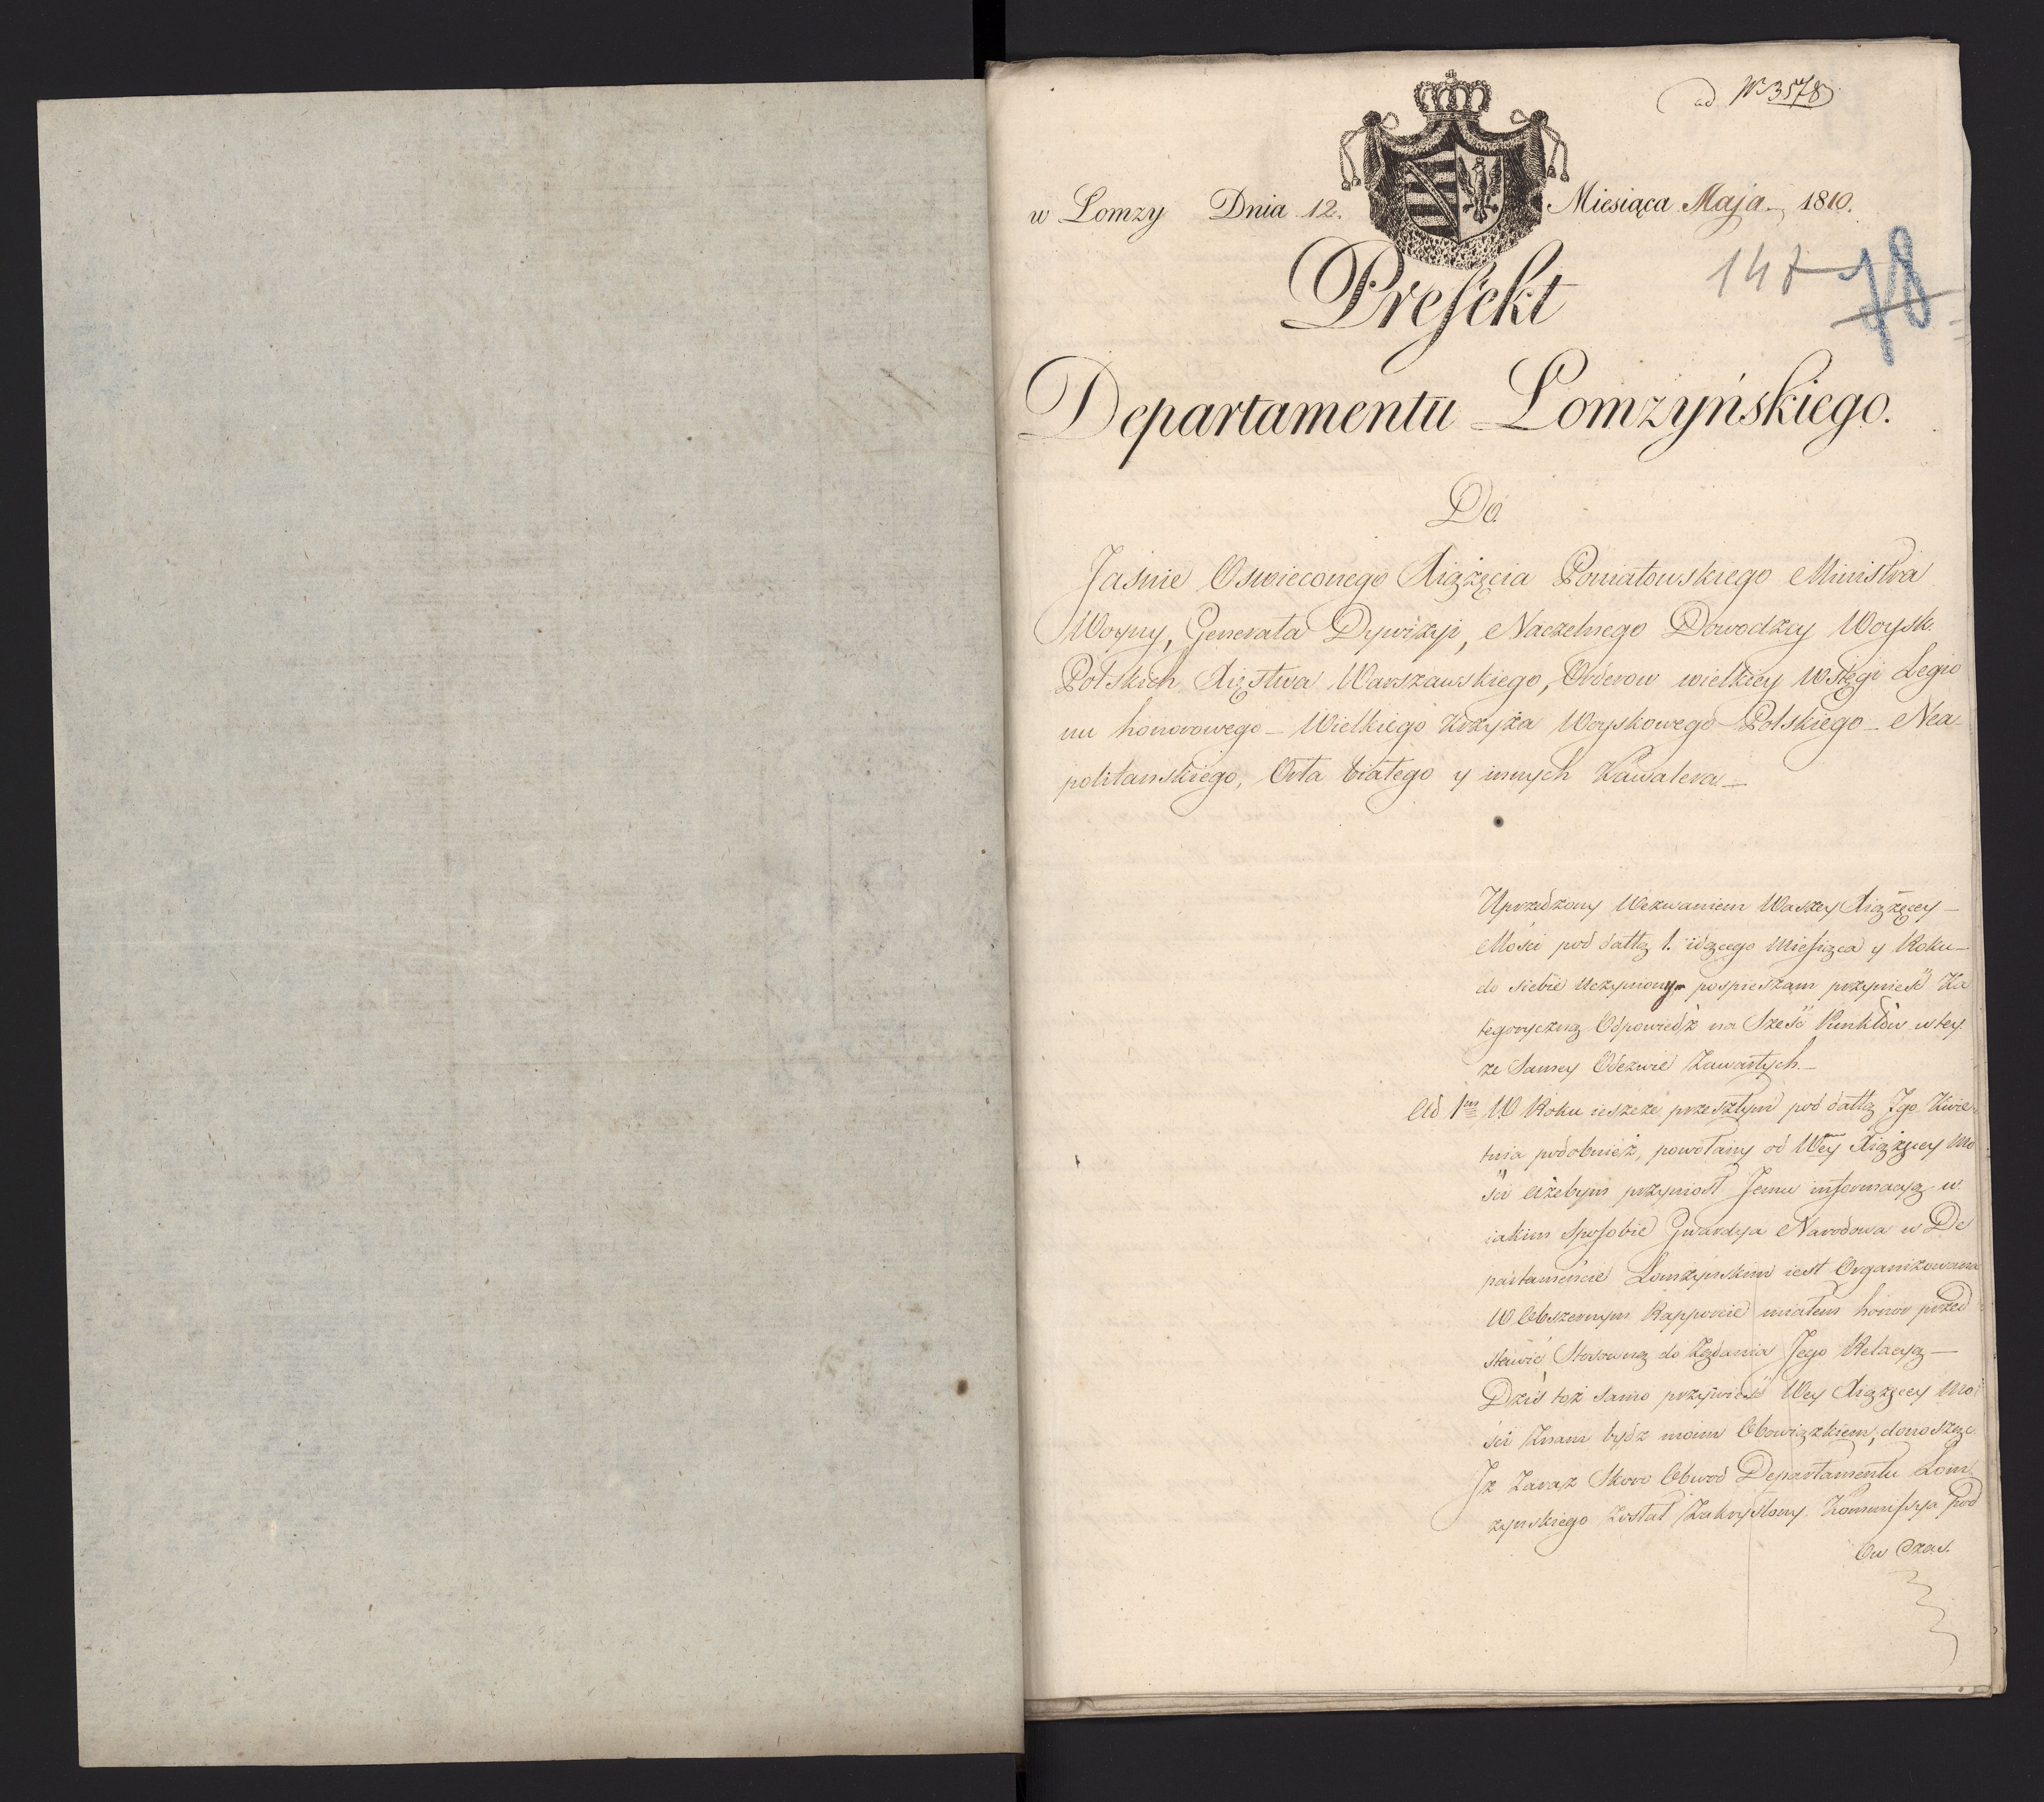 ad Nr 3578
w Lomzy Dnia 12. Miesiąca Maja 1810.
147 78
Prefekt
Departamentu Lomzyńskiego.
Do
Jaśnie Oswieconego Xiążęcia Poniatowskiego Ministra
Woyny, Generała Dywizyi, Naczelnego Dowodzcy Woysk.
Polskich Xięstwa Warszawskiego, Orderow wielkiey Wstęgi Legio
nu honorowego – Wielkiego Krzyża Woyskowego Polskiego – Nea
politanskiego, Orła białego y innych Kawalera –
Uprzedzony Wezwaniem Waszey Xiążęcey –
Mości pod dattą 1. idącego Miesiąca y Roku –
do siebie Uczyniony pospieszam przynieść Ka
tegoryczną Odpowiedź na Sześć Punktów w tey
że Samey Odezwie Zawartych. –
Ad 1m W Roku ieszcze przeszłym pod dattą 7go Kwie
tnia podobnież, powołany od Wey Xiążęcey Mo
ści ażebym przyniosł Jemu informacyą w
iakim Sposobie Gwardya Narodowa w De
partamencie Lomzynskim iest Organizowana
W Obszernym Rapporcie miałem honor przed
stawić Stosowną do Żądania Jego Relacyą –
Dziś toż samo przynieść Wey Xiążęcey Mo
ści Znam bydz moim Obowiązkiem, donosząc
Jż Zaraz Skoro Obwod Departamentu Lom
zynskiego został Zakryslony Kommissya pod
Ow Czas.